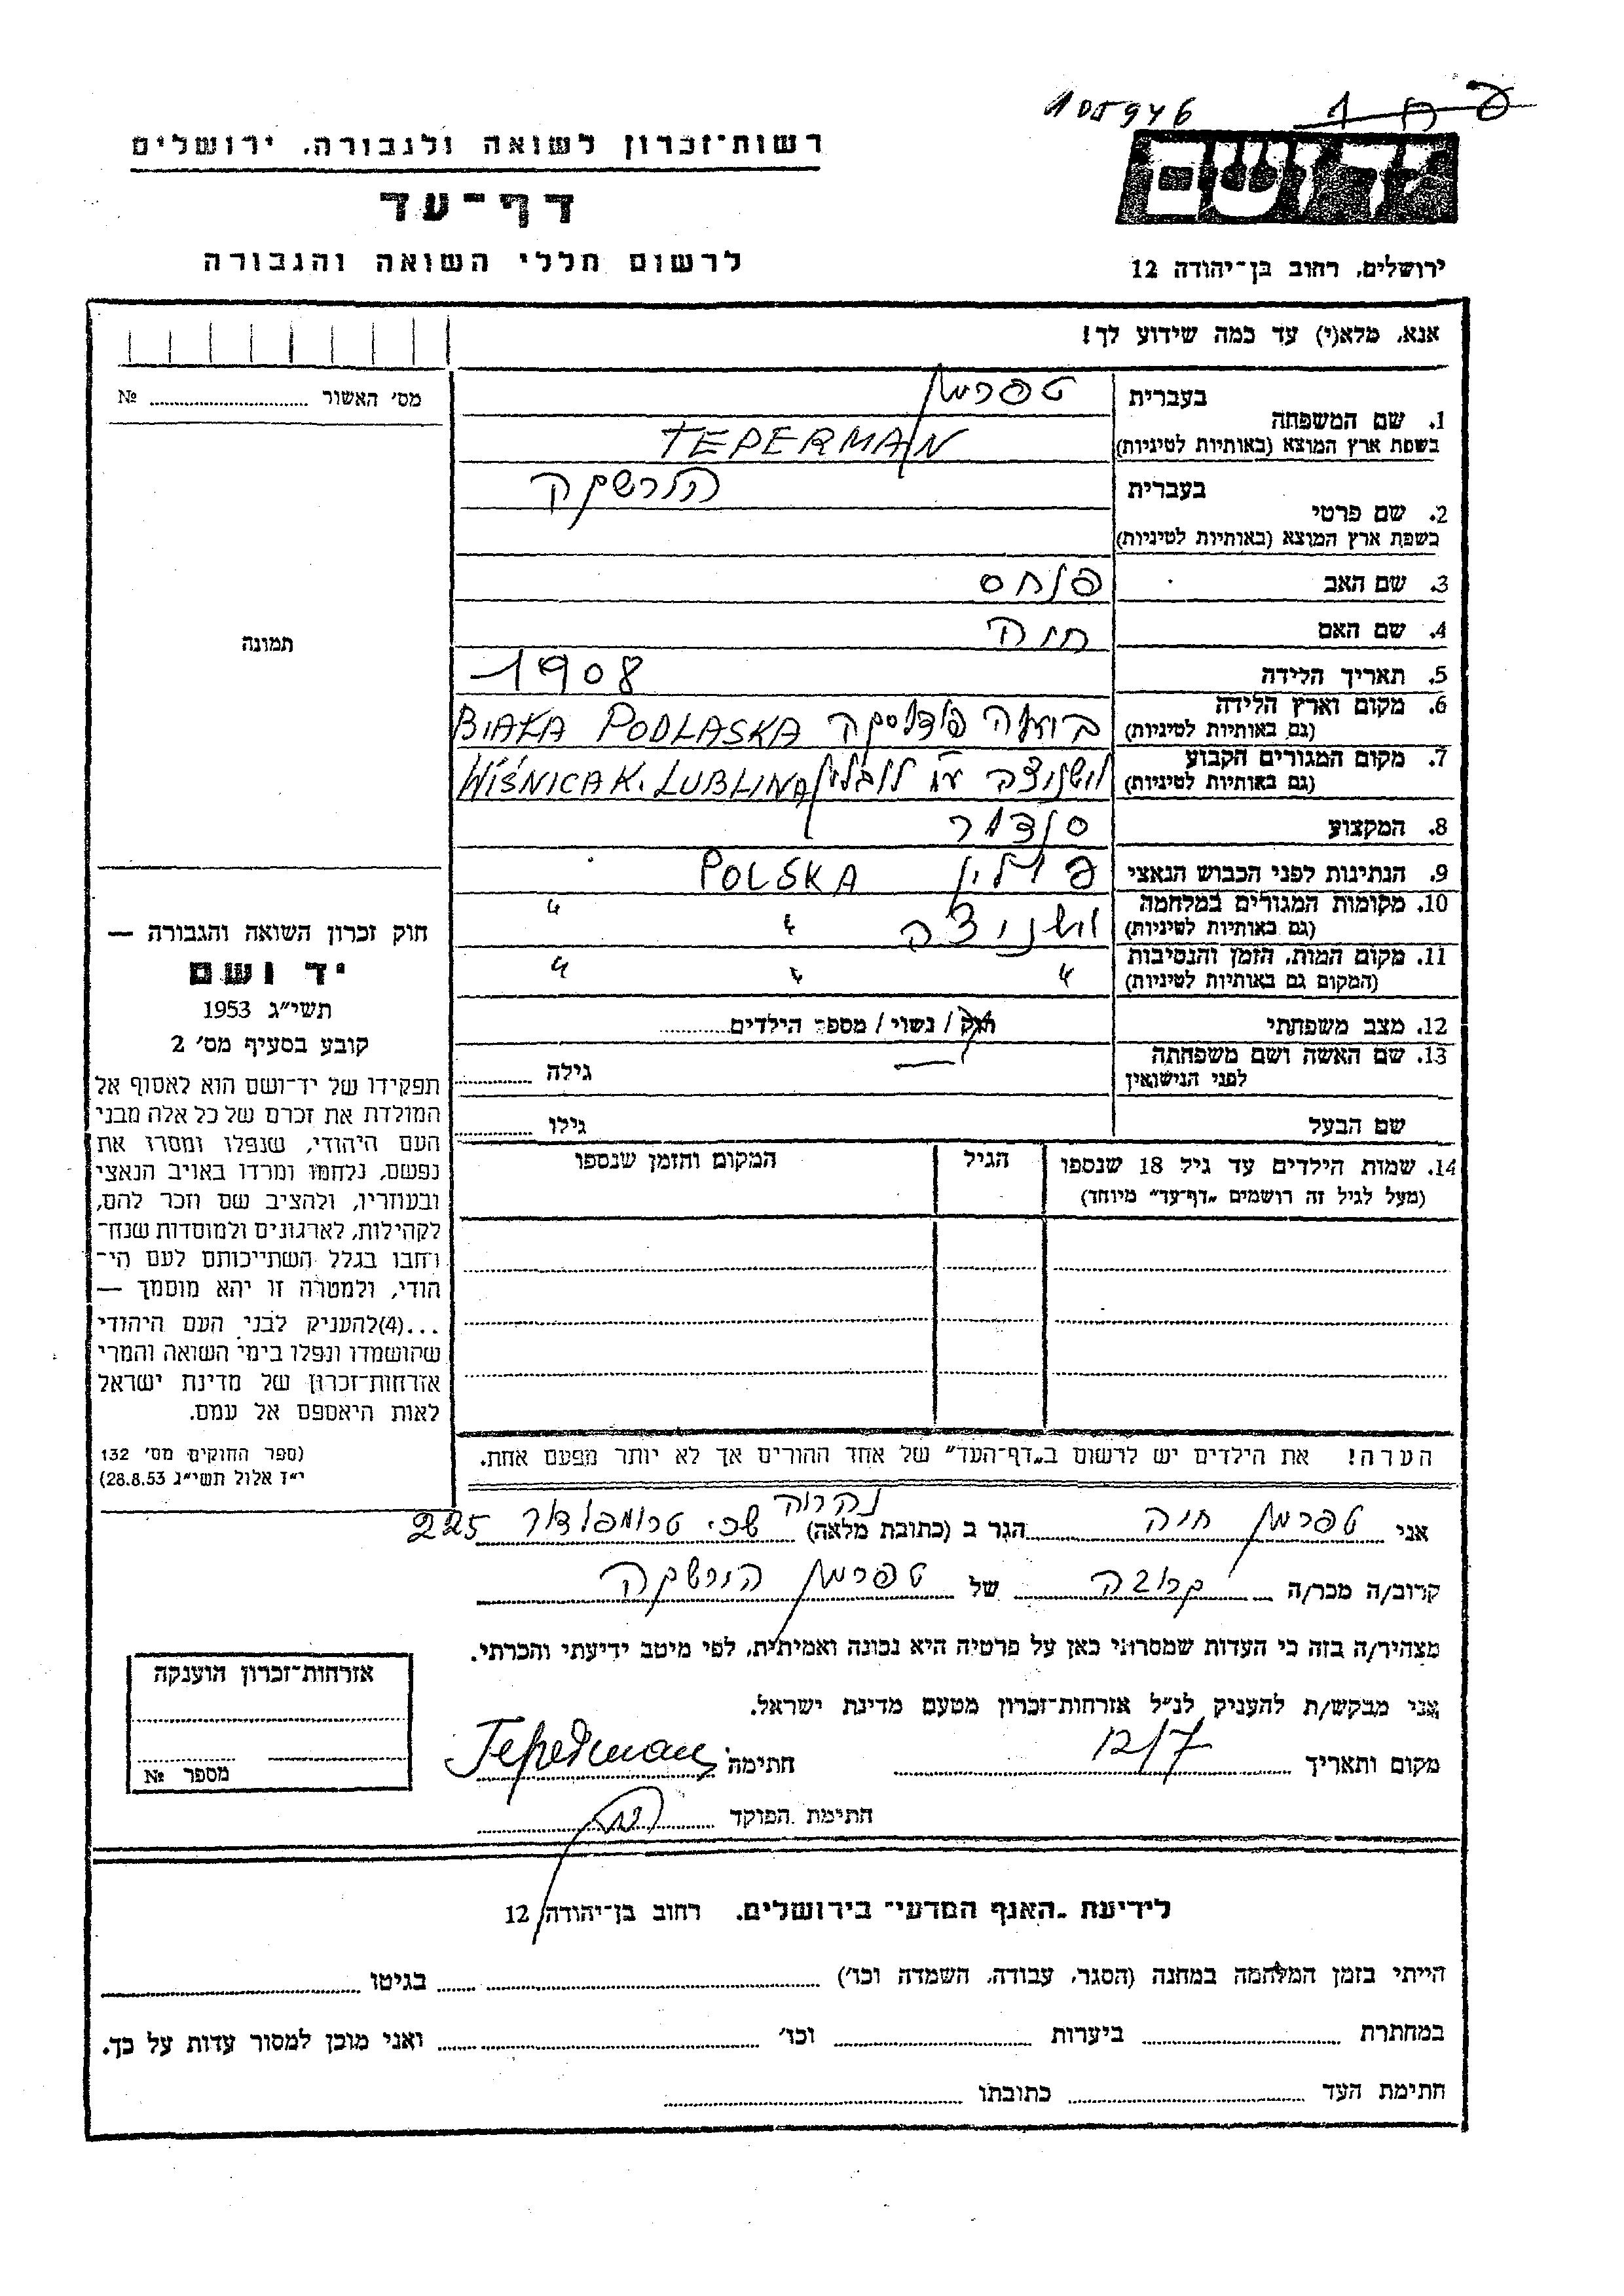 105946
רשות־זכרון לשואה ולגבורה, ירושלים
יד ושם
דף־עד
לרשום חללי השואה והגבורה
ירושלים, רחוב בן־יהודה 12
אנא, מלא(י) עד כמה שידוע לך!
מס׳ האשור № 
1. שם המשפחה בעברית טפרמן
בשפת ארץ המוצא (באותיות לטיניות) TEPERMAN
2. שם פרטי בעברית הרשקה
בשפת ארץ המוצא (באותיות לטיניות)
3. שם האב פנחס
4. שם האם חיה
תמונה
5. תאריך הלידה 1908
6. מקום וארץ הלידה (גם באותיות לטיניות) ביאלה פודלסקה BIAŁA PODLASKA
7. מקום המגורים הקבוע (גם באותיות לטיניות) וושניצה ע״י לובלין WIŚNICA K. LUBLINA
8. המקצוע סנדלר
9. הנתינות לפני הכבוש הנאצי פולין POLSKA
10. מקומות המגורים במלחמה (גם באותיות לטיניות) וושניצה " "
11. מקום המות, הזמן והנסיבות (המקום גם באותיות לטיניות) " " "
12. מצב משפחתי רוק / נשוי / מספר הילדים
13. שם האשה ושם משפחתה לפני הנישואין — גילה
שם הבעל גילו
14. שמות הילדים עד גיל 18 שנספו הגיל המקום והזמן שנספו
(מעל לגיל זה רושמים „דף־עד״ מיוחד)
חוק זכרון השואה והגבורה —
יד ושם
תשי״ג 1953
קובע בסעיף מס׳ 2
תפקידו של יד־ושם הוא לאסוף אל
המולדת את זכרם של כל אלה מבני
העם היהודי, שנפלו ומסרו את
נפשם, נלחמו ומרדו באויב הנאצי
ובעוזריו, ולהציב שם וזכר להם,
לקהילות, לארגונים ולמוסדות שנח־
רבו בגלל השתייכותם לעם הי־
הודי, ולמטרה זו יהא מוסמך —
...(4)להעניק לבני העם היהודי
שהושמדו ונפלו בימי השואה והמרי
אזרחות־זכרון של מדינת ישראל
לאות היאספם אל עמם.
(ספר החוקים מס׳ 132
י״ז אלול תשי״ג 28.8.53)
הערה! את הילדים יש לרשום ב„דף־העד״ של אחד ההורים אך לא יותר מפעם אחת.
נהריה
אני טפרמן חיה הגר ב (כתובת מלאה) שכ׳ טרומפלדור 225
קרוב/ה מכר/ה קרובה של טפרמן הירשקה
מצהיר/ה בזה כי העדות שמסרתי כאן על פרטיה היא נכונה ואמיתית, לפי מיטב ידיעתי והכרתי.
אני מבקש/ת להעניק לנ״ל אזרחות־זכרון מטעם מדינת ישראל.
מקום ותאריך 12/7 חתימה Teperman
חתימת הפוקד
אזרחות־זכרון הוענקה
מספר №
לידיעת „האגף המדעי״ בירושלים, רחוב בן־יהודה 12
הייתי בזמן המלחמה במחנה (הסגר, עבודה, השמדה וכו׳) בגיטו
במחתרת ביערות וכו׳ ואני מוכן למסור עדות על כך.
חתימת העד כתובתו